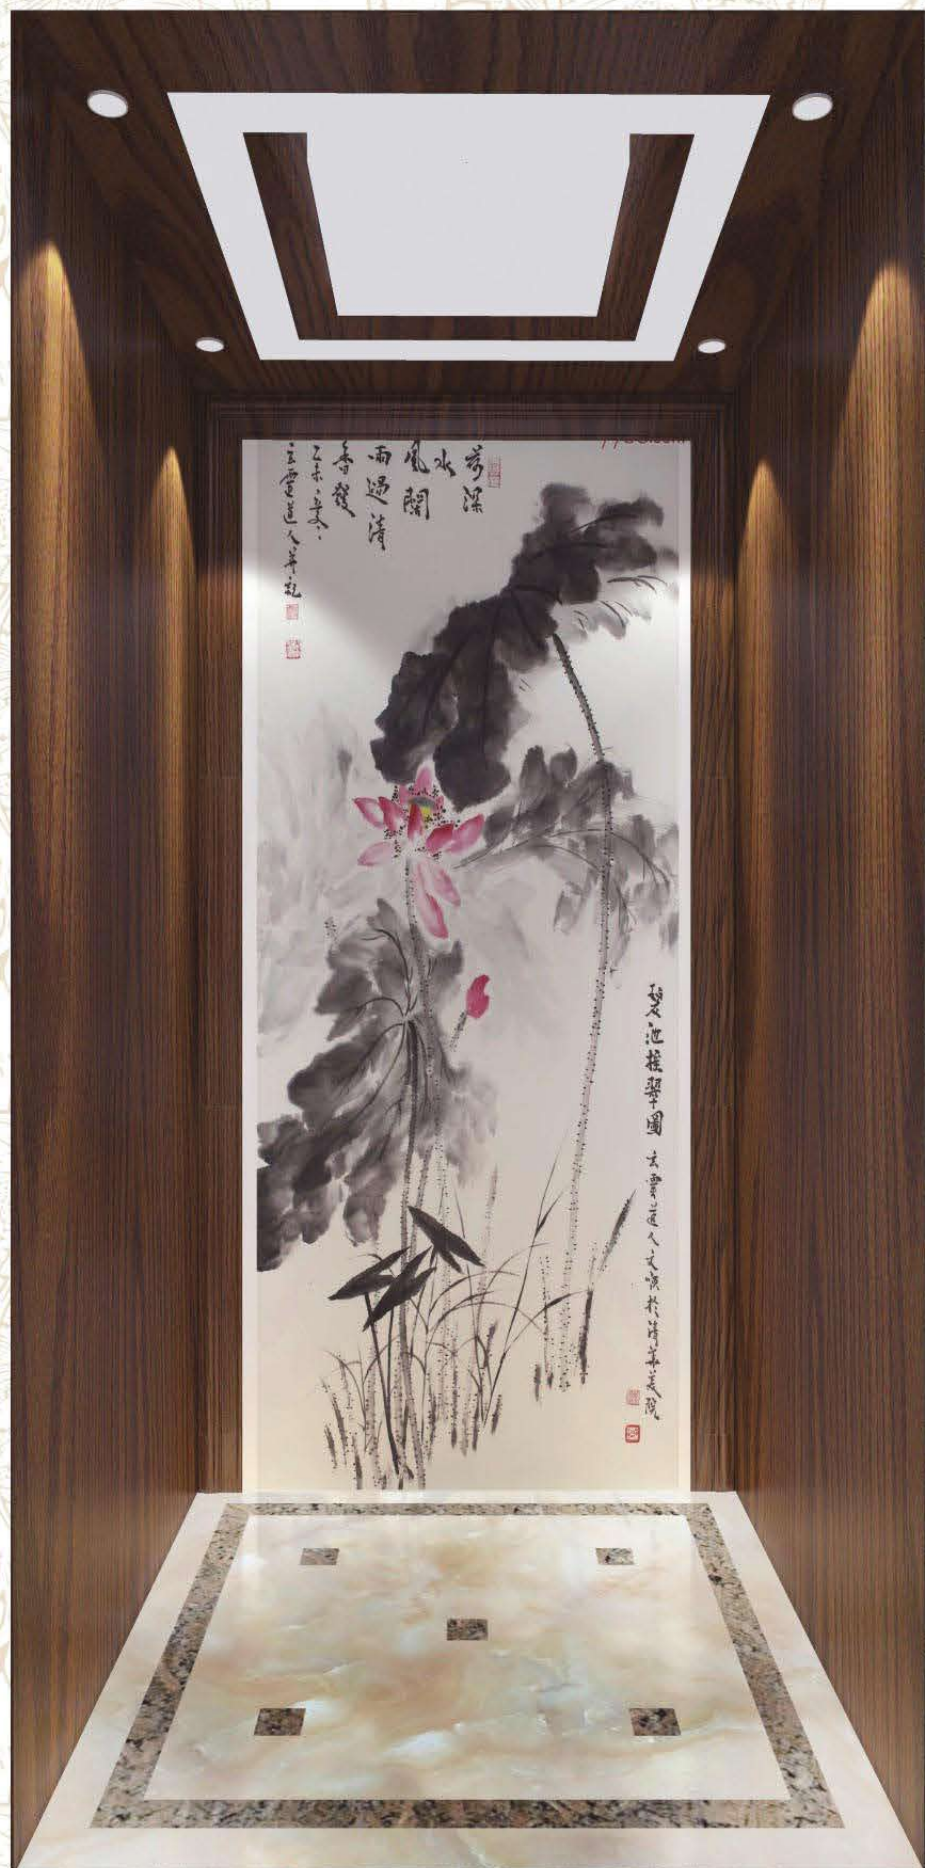 荷深
水
風闊
雨過清
香發
乙未之夏
玄雲道人並記
碧池擁翠圖 玄雲道人文於清華美院